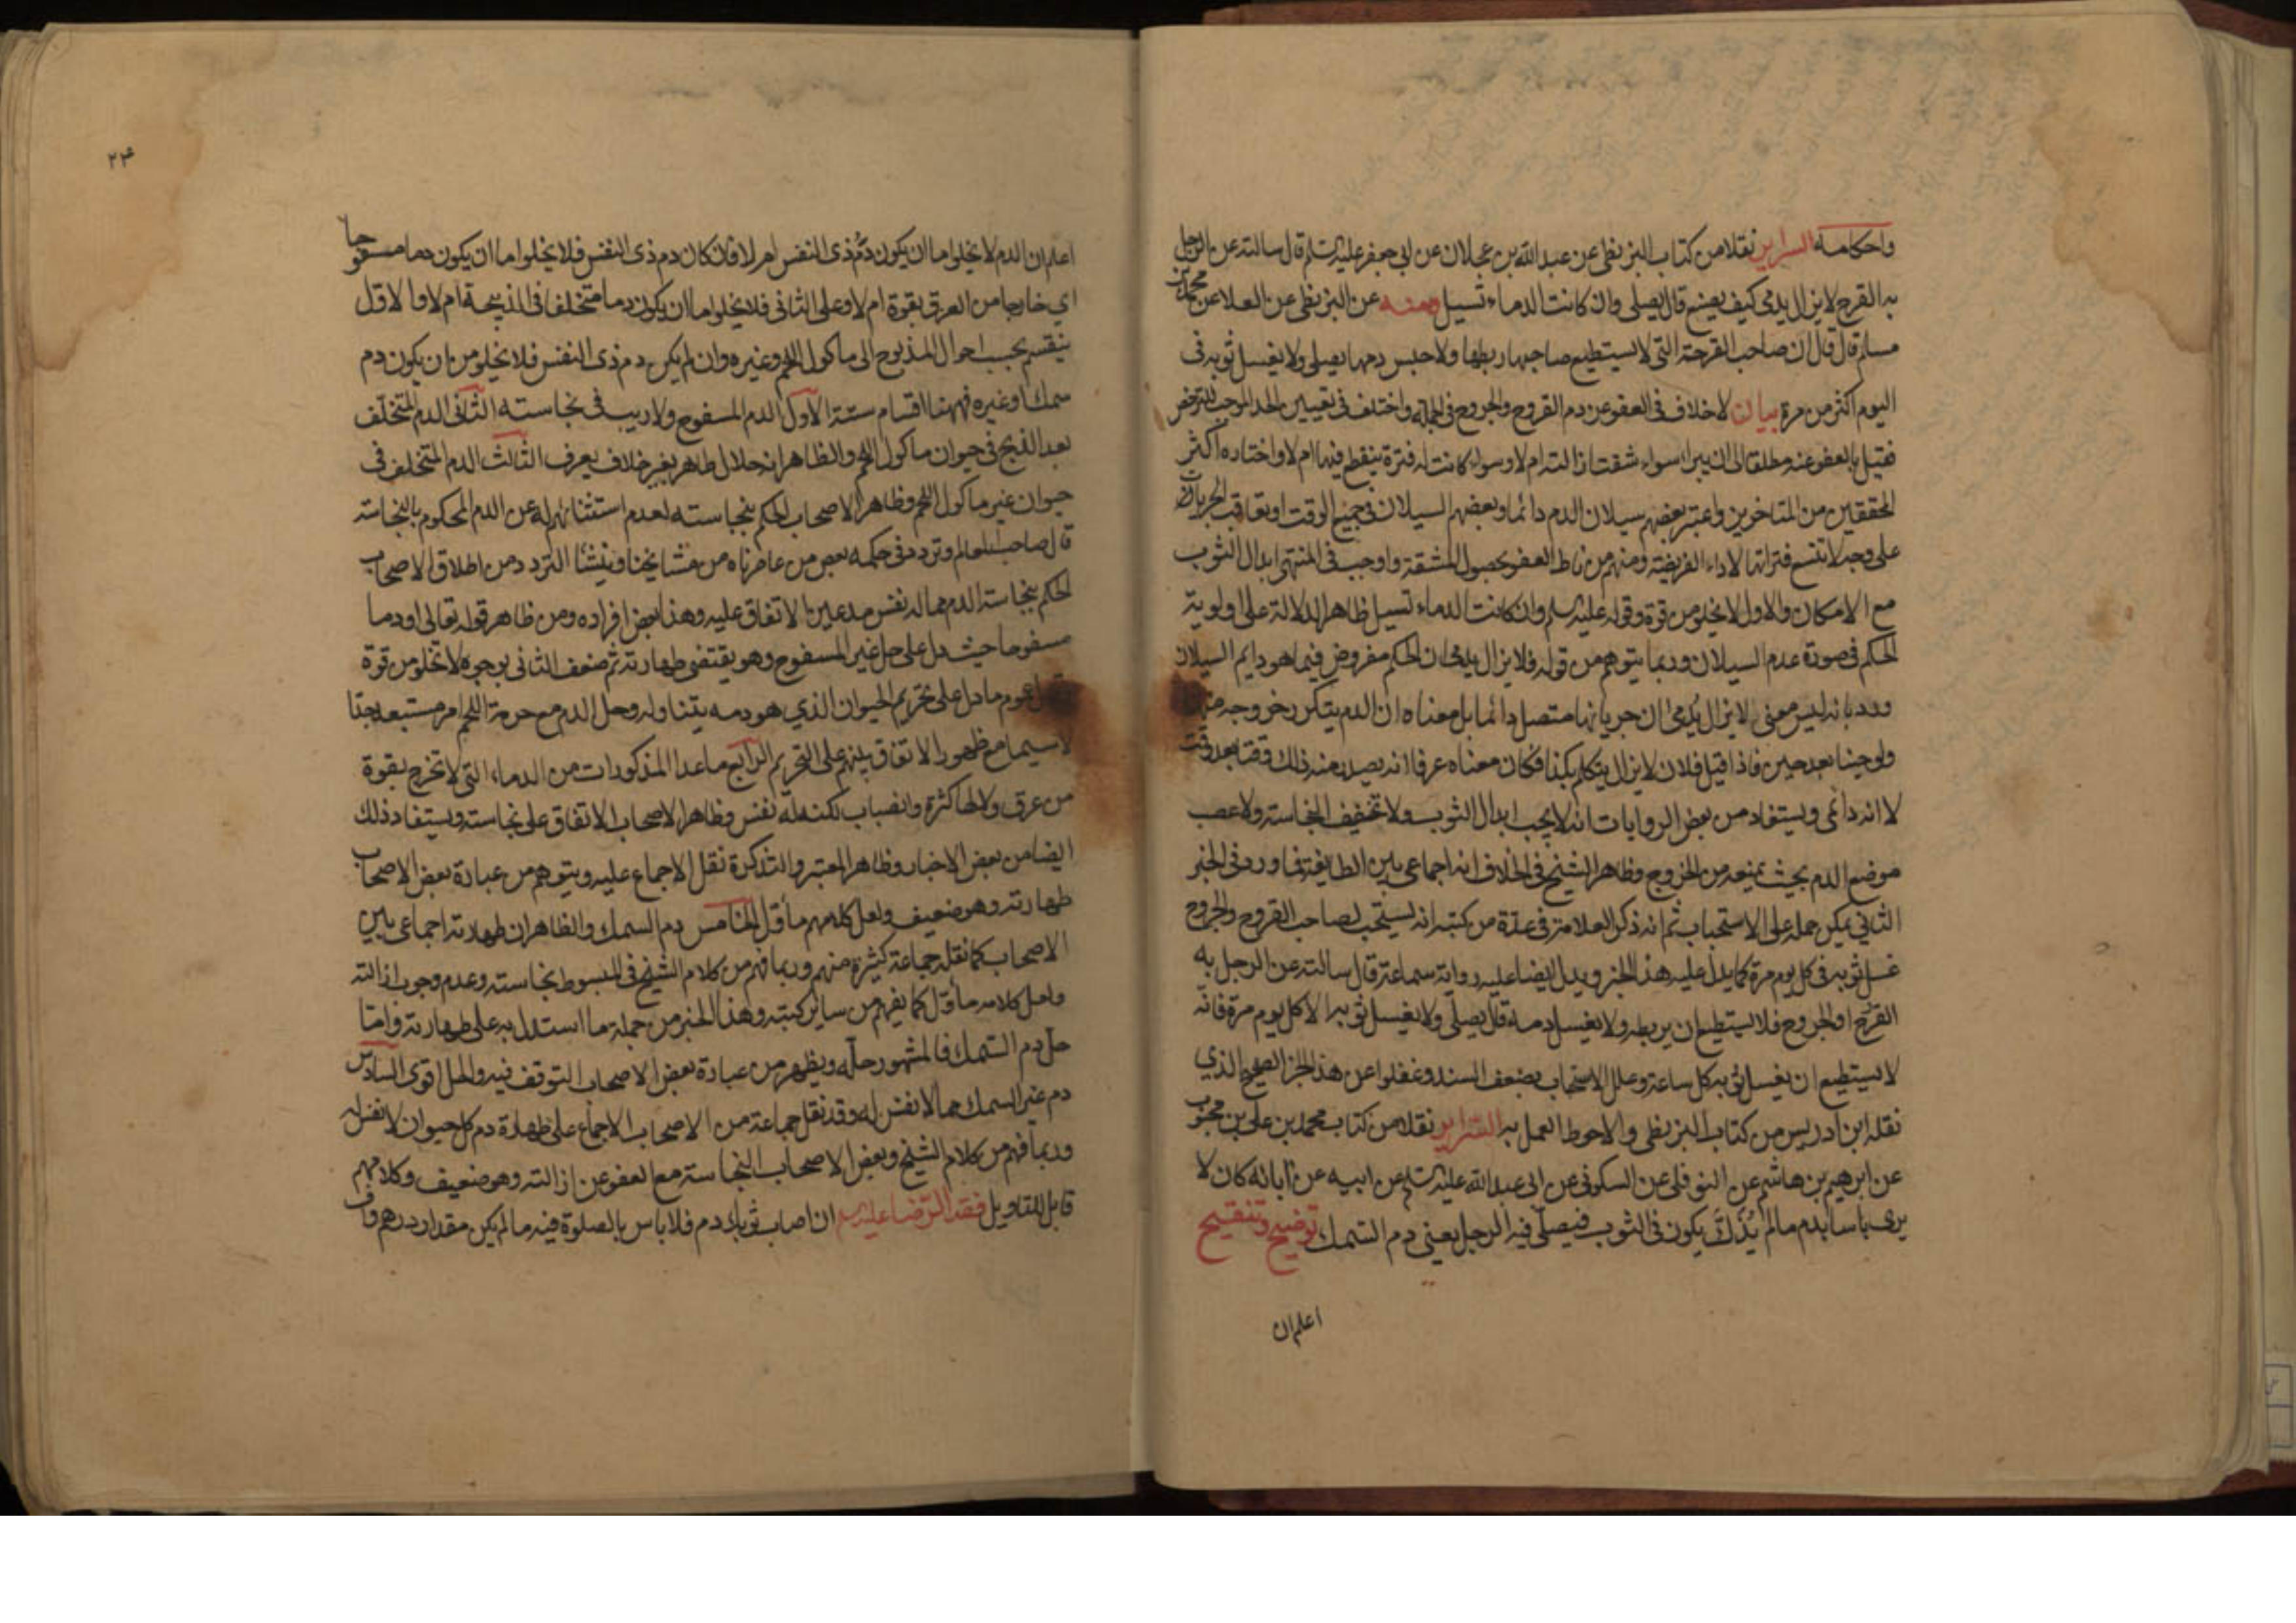 واحكامه السراير نقلا من كتاب البزنطي عن عبد الله بن عجلان عن ابي جعفر عليه السلم قال سالته عن الرجل
به القرح لا يزال يدمى كيف يصنع قال يصلى وان كانت الدماء تسيل ومنه عن البزنطي عن العلا عن محمد بن
مسلم قال قال ان صاحب القرحة التي لا يستطيع صاحبها ربطها ولا حبس دمها يصلى ولا يغسل ثوبه في
اليوم اكثر من مرة بيان لا خلاف في العفو عن دم القروح والجروح في الجملة واختلف في تعيين الحد الموجب للترخص
فقيل بالعفو عنه مطلقا الى ان يبرا سواء شقت ازالته ام لا وسواء كانت له فترة ينقطع فيها ام لا واختاره اكثر
المحققين من المتاخرين واعتبر بعضهم سيلان الدم دائما وبعضهم السيلان في جميع الوقت او تعاقب الجريان
على وجه لا تتسع فتراتها لاداء الفريضة ومنهم من ناط العفو بحصول المشقة واوجب في المنتهى ابدال الثوب
مع الامكان والاول لا يخلو من قوة وقوله عليه السلم وان كانت الدماء تسيل ظاهر الدلالة على اولوية
الحكم في صورة عدم السيلان وربما يتوهم من قوله فلا يزال يدمى ان الحكم مفروض فيما هو دايم السيلان
ورد بانه ليس معنى لا يزال يدمى ان جريانها متصل دائما بل معناه ان الدم يتكرر خروجه منها
ولو حينا بعد حين فاذا قيل فلان لا يزال يتكلم بكذا فكان معناه عرفا انه يصدر منه ذلك وقتا بعد وقت
لا انه دائمى ويستفاد من بعض الروايات انه لا يجب ابدال الثوب ولا تخفيف النجاسة ولا عصب
موضع الدم بحيث يمنعه من الخروج وظاهر الشيخ في الخلاف انه اجماعى بين الطايفة فما ورد في الخبر
الثاني يمكن حمله على الاستحباب ثم انه ذكر العلامة في عدة من كتبه انه يستحب لصاحب القروح والجروح
غسل ثوبه في كل يوم مرة كما يدل عليه هذا الخبر ويدل ايضا عليه رواية سماعة قال سالته عن الرجل به
القرح او الجروح فلا يستطيع ان يربطه ولا يغسل دمه قال يصلى ولا يغسل ثوبه الا كل يوم مرة فانه
لا يستطيع ان يغسل ثوبه كل ساعة وعلل الاستحباب بضعف السند وغفلوا عن هذا الخبر الصحيح الذي
نقله ابن ادريس من كتاب البزنطي والاحوط العمل به السراير نقلا من كتاب محمد بن على بن محبوب
عن ابرهيم بن هاشم عن النوفلى عن السكونى عن ابي عبد الله عليه السلم عن ابيه عن آبائه كان لا
يرى باسا بدم ما لم يذك يكون في الثوب فيصلى فيه الرجل يعنى دم السمك توضيح وتنقيح
اعلم ان
٢٤
اعلم ان الدم لا يخلو اما ان يكون دم ذى النفس ام لا فان كان دم ذى النفس فلا يخلو اما ان يكون دما مسفوحا
اي خارجا من العرق بقوة ام لا وعلى الثاني فلا يخلو اما ان يكون دما متخلفا في الذبيحة ام لا والاول
ينقسم بحسب احوال المذبوح الى ماكول اللحم وغيره وان لم يكن دم ذى النفس فلا يخلو من ان يكون دم
سمك او غيره فههنا اقسام ستة الاول الدم المسفوح ولا ريب في نجاسته الثانى الدم المتخلف
بعد الذبح في حيوان ماكول اللحم والظاهر انه حلال طاهر بغير خلاف يعرف الثالث الدم المتخلف في
حيوان غير ماكول اللحم وظاهر الاصحاب الحكم بنجاسته لعدم استثنائهم له عن الدم المحكوم بالنجاسة
قال صاحب المعالم وتردد في حكمه بعض من عاصرناه من مشايخنا وينشا التردد من اطلاق الاصحاب
الحكم بنجاسة الدم مما له نفس مدعين الاتفاق عليه وهذا بعض افراده ومن ظاهر قوله تعالى او دما
مسفوحا حيث دل على حل غير المسفوح وهو يقتضى طهارته ثم ضعف الثانى بوجوه لا تخلو من قوة
عموم ما دل على تحريم الحيوان الذي هو دمه يتناوله وحل الدم مع حرمة اللحم امر مستبعد جدا
لا سيما مع ظهور الاتفاق بينهم على التحريم الرابع ما عدا المذكورات من الدماء التى لا تخرج بقوة
من عرق ولا لها كثرة وانصباب لكنه مما له نفس وظاهر الاصحاب الاتفاق على نجاسته ويستفاد ذلك
ايضا من بعض الاخبار وظاهر المعتبر والتذكرة نقل الاجماع عليه ويتوهم من عبارة بعض الاصحاب
طهارته وهو ضعيف ولعل كلامهم مأول الخامس دم السمك والظاهر ان طهارته اجماعى بين
الاصحاب كما نقله جماعة كثيرة منهم وربما فهم من كلام الشيخ في المبسوط نجاسته وعدم وجوب ازالته
ولعل كلامه مأول كما يفهم من ساير كتبه وهذا الخبر من جملة ما استدل به على طهارته واما
حل دم السمك فالمشهور حله ويظهر من عبارة بعض الاصحاب التوقف فيه والحل اقوى السادس
دم غير السمك مما لا نفس له وقد نقل جماعة من الاصحاب الاجماع على طهارة دم كل حيوان لا نفس له
وربما فهم من كلام الشيخ وبعض الاصحاب النجاسة مع العفو عن ازالته وهو ضعيف وكلامهم
قابل للتاويل فقه الرضا عليه السلم ان اصاب ثوبك دم فلا باس بالصلوة فيه ما لم يكن مقدار درهم واف